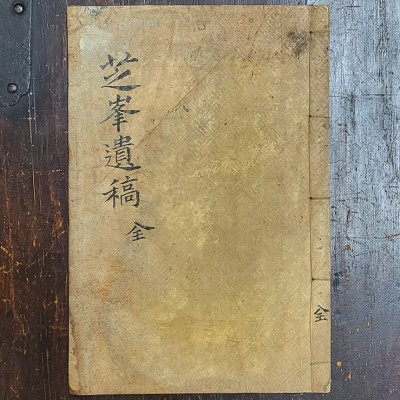 芝峯遺稿
全
全